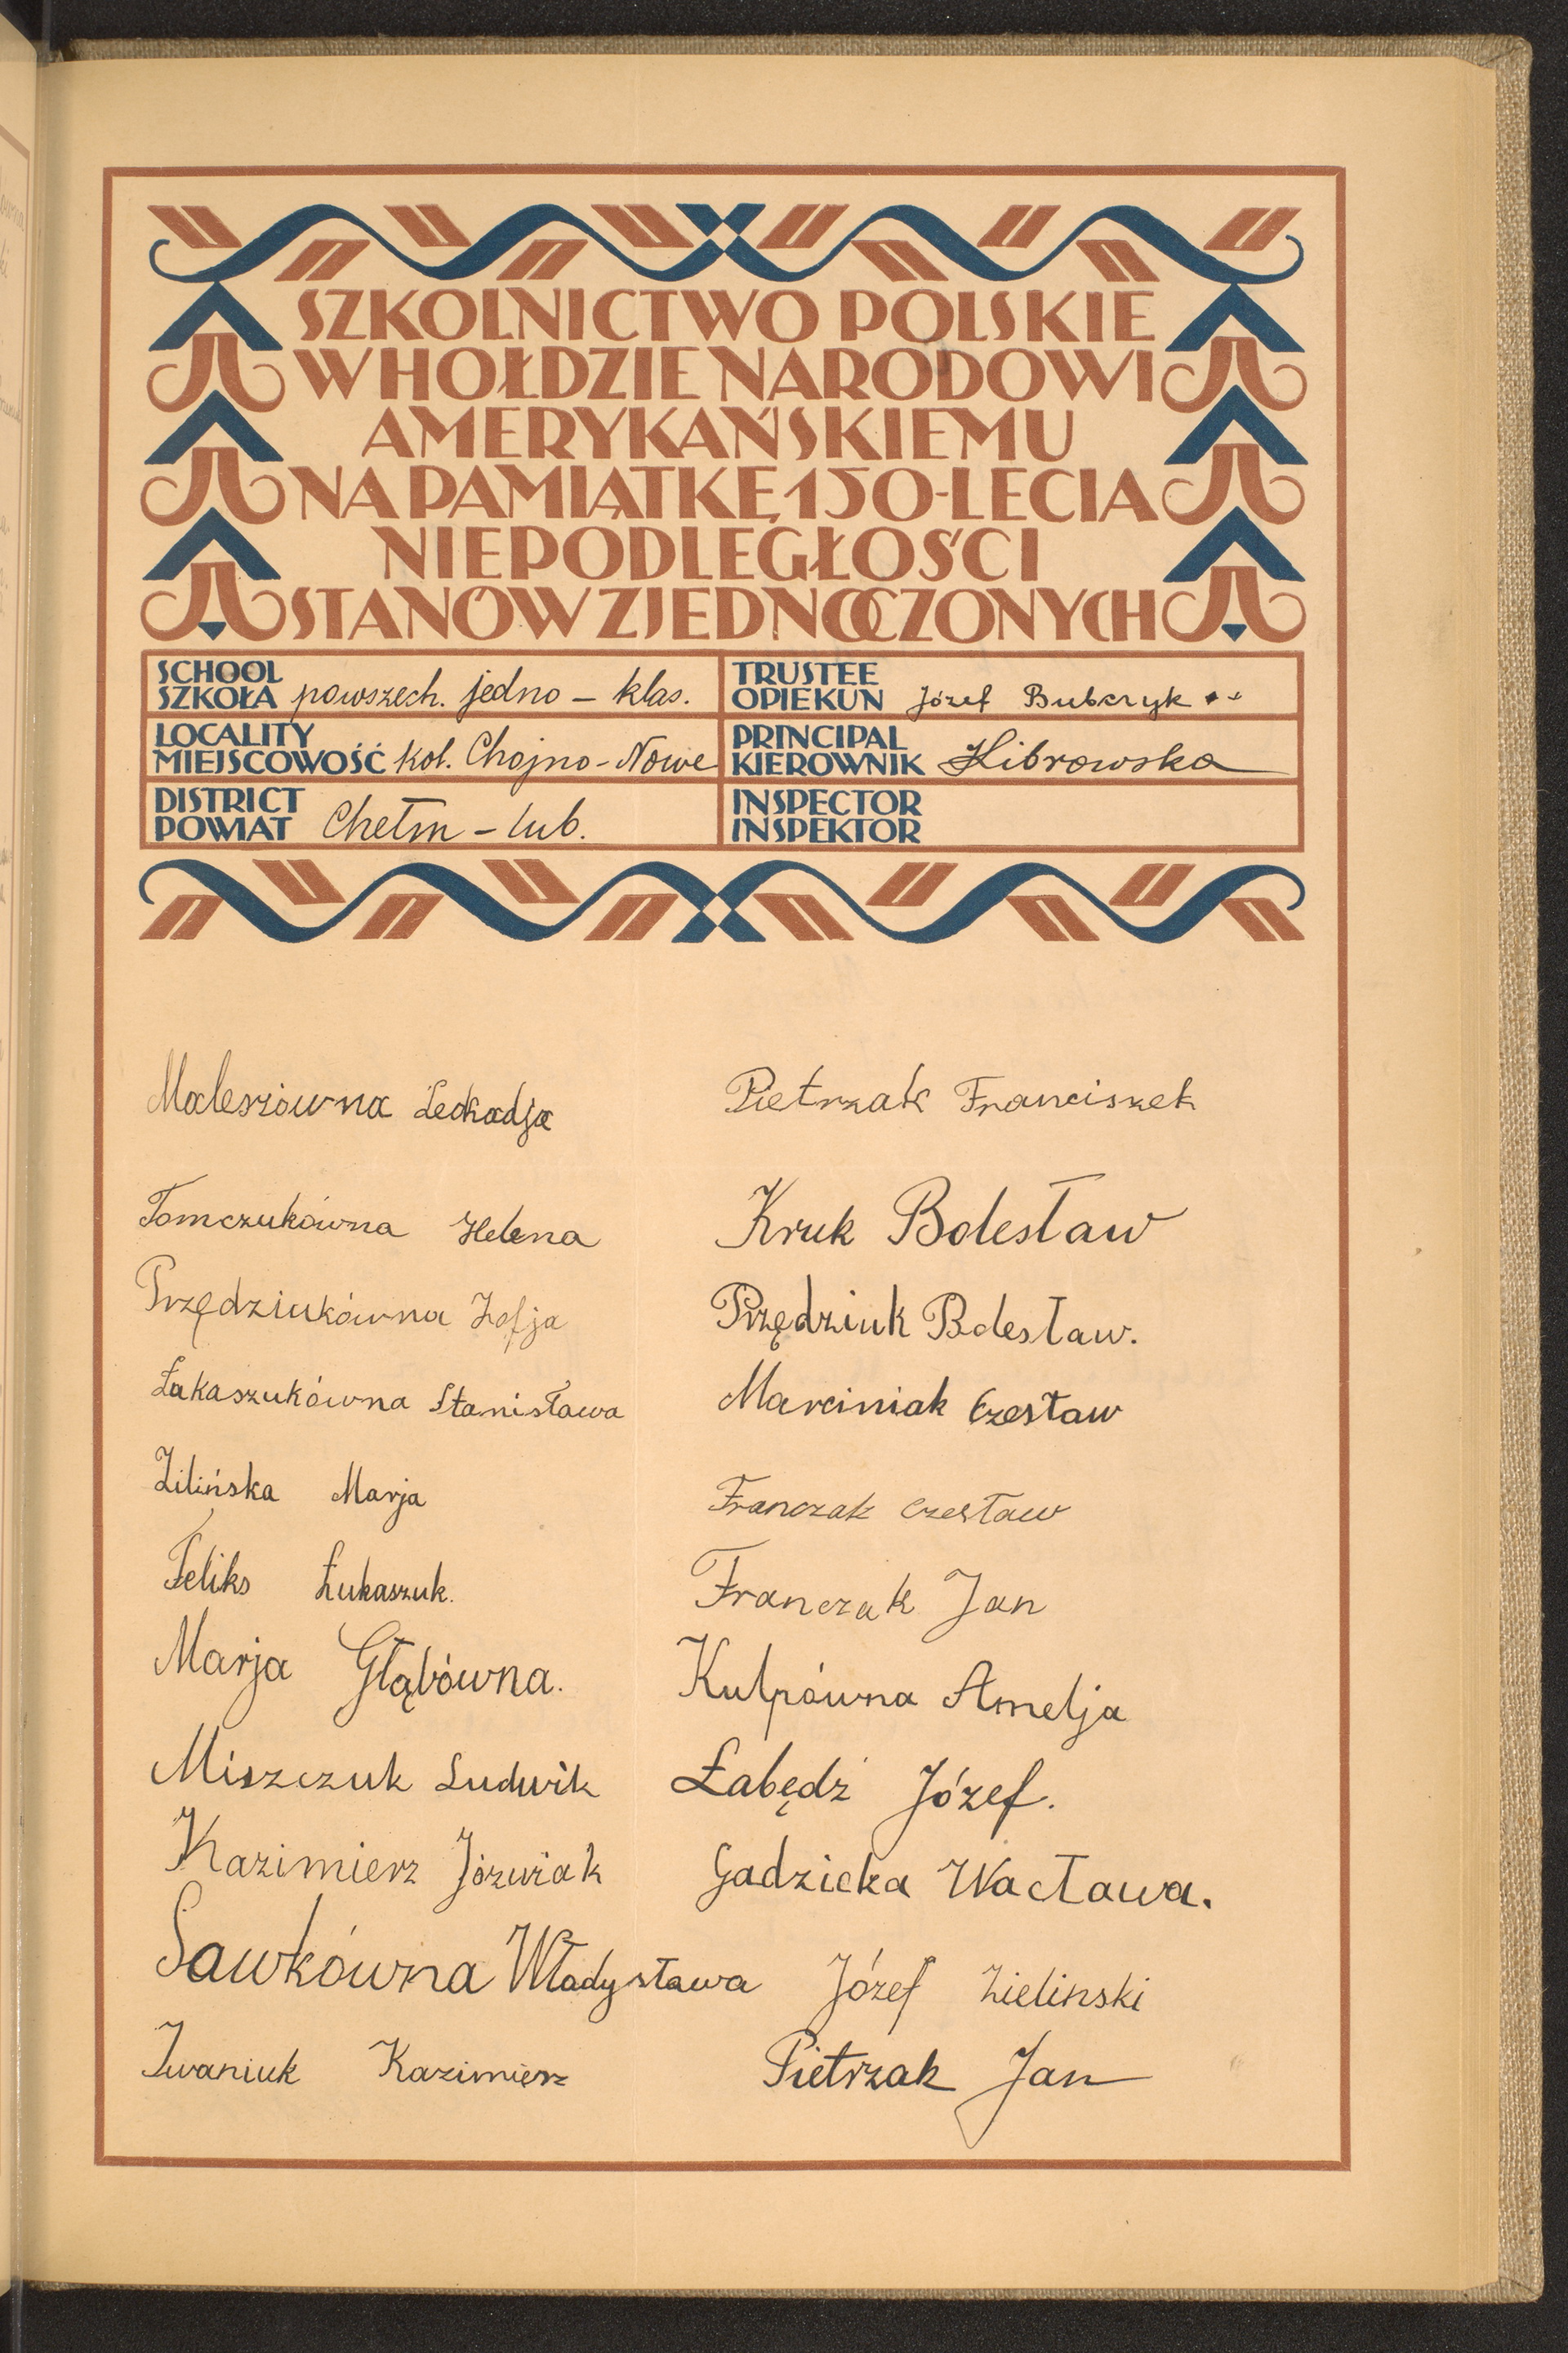 SZKOLNICTWO POLSKIE
W HOŁDZIE NARODOWI
AMERYKAŃSKIEMU
NA PAMIĄTKĘ 150-LECIA
NIEPODLEGŁOŚCI
STANÓW ZJEDNOCZONYCH
SCHOOL
SZKOŁA powszech. jedno - klas.
TRUSTEE
OPIEKUN Józef Bubczyk
LOCALITY
MIEJSCOWOŚĆ kol. Chojno-Nowe
PRINCIPAL
KIEROWNIK Kibrowska
DISTRICT
POWIAT Chełm - Lub.
INSPECTOR
INSPEKTOR
Maleszówna Leokadja
Tomczukówna Helena
Przędziukówna Zofja
Łukaszukówna Stanisława
Zilińska Marja
Feliks Łukaszuk.
Marja Głąbówna.
Miszczuk Ludwik
Kazimierz Józwiak
Sawkówna Władysława
Iwaniuk Kazimierz
Pietrzak Franciszek
Kruk Bolesław
Przędziuk Bolesław.
Marciniak Czesław
Franczak Czesław
Franczak Jan
Kulpówna Amelja
Łabędź Józef.
Gadzicka Wacława.
Józef Zielinski
Pietrzak Jan